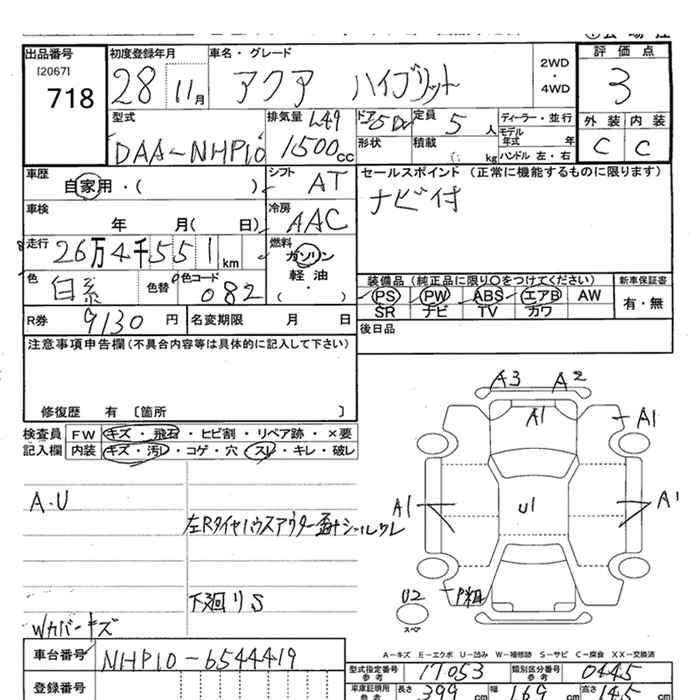 出品番号 初度登録年月 車名・グレード 2WD ・ 4WD 評価点
[2067]
718 28 11月 アクア ハイブリット 3
型式 排気量 L49 ドア 5D 定員 5人 ディーラー・並行 外装 内装
DAA-NHP10 1500cc 形状 積載 kg モデル年式 年 C C
ハンドル 左・右
車歴 シフト セールスポイント(正常に機能するものに限ります)
自家用・( ) AT ナビ付
車検 冷房
年 月( 日) AAC
走行 26万4千551km 燃料 ガソリン
軽油
(・)
色 白系 色替 色コード 082 装備品(純正品に限り○をつけてください) 新車保証書
PS PW ABS エアB AW 有・無
R券 9130円 名変期限 月 日 SR ナビ TV カワ
注意事項申告欄(不具合内容等は具体的に記入して下さい) 後日品
修復歴 有 [箇所 ]
A3 A2
A1 A1
検査員 FW キズ・飛石・ヒビ割・リペア跡・×要
記入欄 内装 キズ・汚レ・コゲ・穴・スレ・キレ・破レ
A・U
A1 U1 A1
左Rタイヤハウスアウター シールワレ
下廻りS
U2 P粗
スペア
Wカバーキズ
A-キズ E-エクボ U-凹み W-補修跡 S-サビ C-腐食 XX-交換済
車台番号 NHP10-6544419
型式指定番号 参考 17053 類別区分番号 参考 0445
登録番号
車庫証明用 参考 長さ 399cm 幅 169cm 高さ 145cm